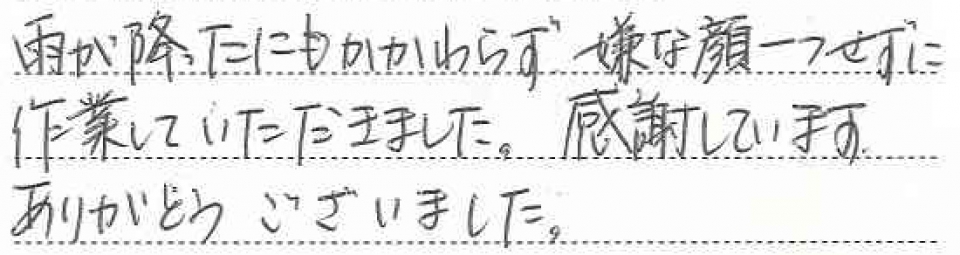 雨が降ったにもかかわらず 嫌な顔一つせずに
作業していただきました。感謝しています。
ありがとう ございました。